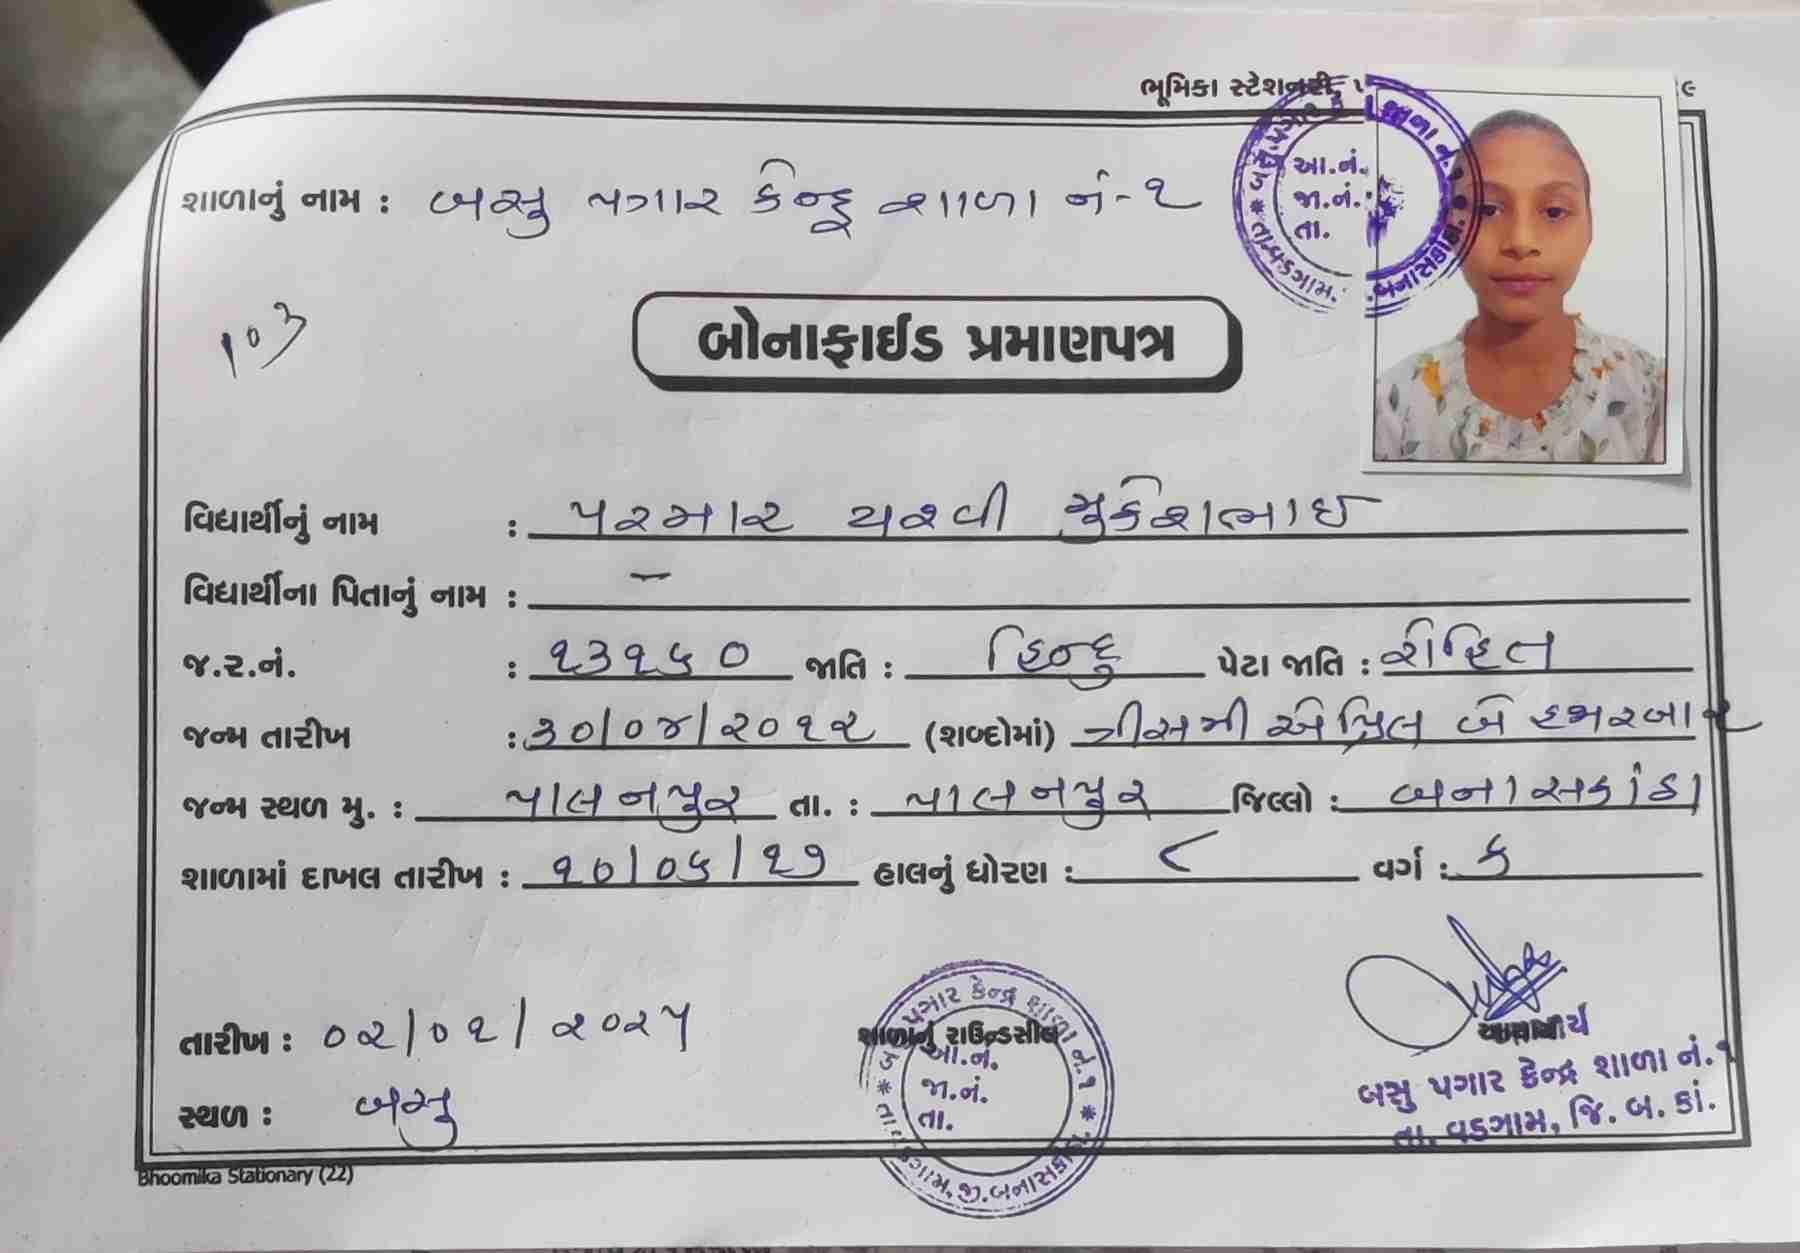 ભૂમિકા સ્ટેશનરી,
શાળાનું નામ : બસુ પગાર કેન્દ્ર શાળા નં-૧
બસુ પગાર કે શાળા નં.૧ * તા.વડગામ. બનાસકાંઠા.
આ.નં.
જા.નં.
તા.
103
બોનાફાઈડ પ્રમાણપત્ર
વિદ્યાર્થીનું નામ : પરમાર યશ્વી મુકેશભાઈ
વિદ્યાર્થીના પિતાનું નામ : –
જ.ર.નં. : ૧૩૧૬૦ જાતિ : હિન્દુ પેટા જાતિ : રોહિત
જન્મ તારીખ : ૩૦/૦૪/૨૦૧૨ (શબ્દોમાં) ત્રીસમી એપ્રિલ બે હજારબાર
જન્મ સ્થળ મુ. : પાલનપુર તા. : પાલનપુર જિલ્લો : બનાસકાંઠા
શાળામાં દાખલ તારીખ : ૧૦/૦૬/૧૭ હાલનું ધોરણ : ૮ વર્ગ : ક
તારીખ : ૦૨/૦૧/૨૦૨૫
સ્થળ : બસુ
શાળાનું રાઉન્ડસીલ
બસુ પગાર કેન્દ્ર શાળા નં.૧ * તા.વડગામ, જી.બનાસકાંઠા. *
આ.નં.
જા.નં.
તા.
આચાર્ય
બસુ પગાર કેન્દ્ર શાળા નં.૧
તા. વડગામ, જિ. બ. કાં.
Bhoomika Stationary (22)